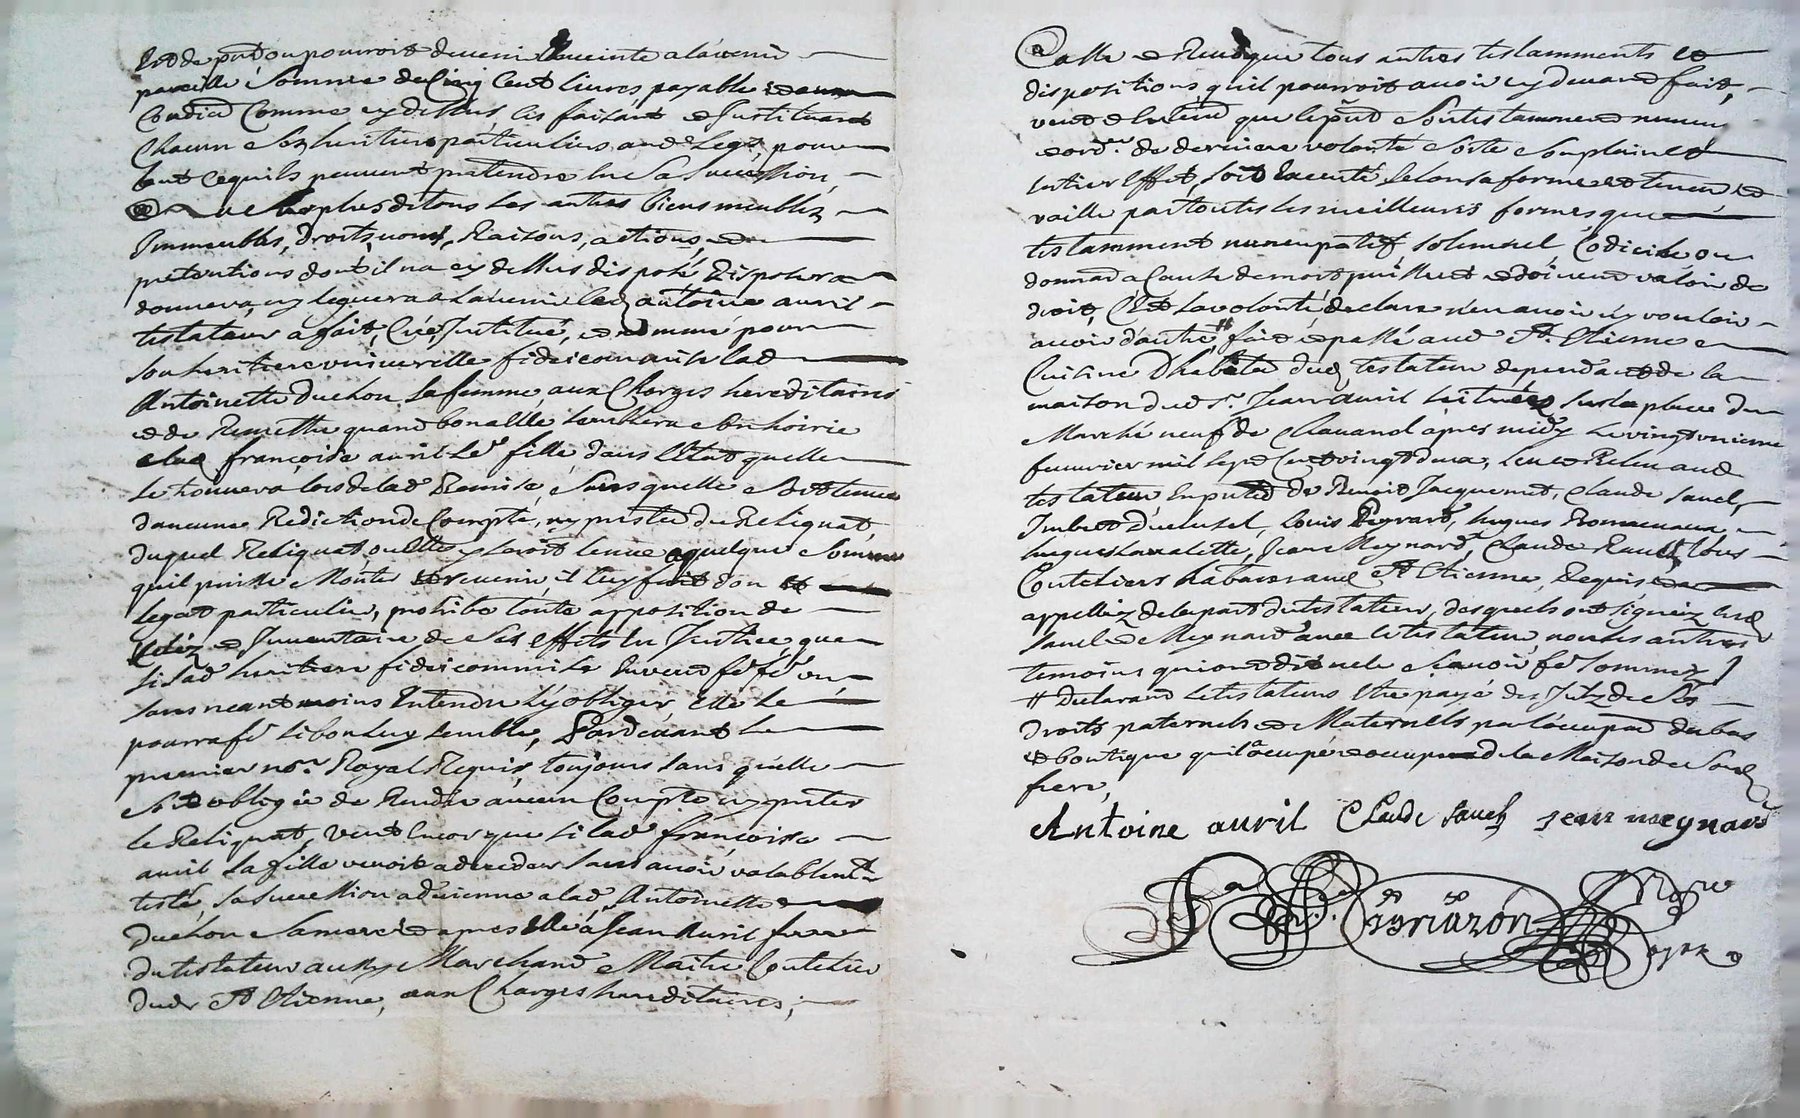 est de p̃nt ou pourroit devenir enceinte a l'avenir
pareille somme de Cinq Cent livres payable
Condiõn Comme cy dessus, les faisant et Instituant
Chacun ses heritiers particuliers aud. Legs, pour
tout ce quils peuvent pretendre en Sa Succession,
et au surplus de tous les autres biens meubles,
Immeubles, droits, noms, Raisons, actions, et
pretentions dont il n'a cy dessus disposé disposera
donnera, ny leguera a L'avenir led antoine avril
testateur a fait, Créé, Institué, et nommé pour
son heritiere universelle fideicommise lad
Antoinette Duchon sa femme, aux Charges hereditaires
et de Remettre quand bon a Elle semblera Son hoirie
a lad françoise avril Le.^r fille, dans l'Etat quelle
se trouvera lors de lad Remise, Sans quelle Soit tenue
d'aucune Rediction de Compte, ny prester du Reliquat,
duquel Reliquat ou Elle seroit tenue a quelque Somme
quil puisse Monter et revenir, il luy fait don et
legat particulier, prohibe toute apposition de
scelez et Inventaire de Ses effets En Justice, que
si lad heritiere fideicommise En veut fe.^r fe.^r un,
sans neantmoins Entendre L'y obliger, Elle Le
pourra fe.^r si bon Luy semble, Pardevant Le
premier no.^re Royal Requis, toujours sans qu'elle
Soit obligée de Rendre aucun Compte ny prester
le Reliquat, Veut Encor que si lad françoise
avril Sa fille venoit a deceder Sans avoir valablem.^t
testé, Sa succession advienne a lad Antoinette
Duchon Sa mere et apres Elle à Jean Avril frere
du testateur aussy Marchand Maitre Coutelier
dud.^t S.^t Etienne, aux Charges hereditaires;
Casse et Revoque tous autres testamments et
dispositions qu'il pourroit avoir cy devant fait,
veut et Entend que le p̃nt Son testamment nuncu
et ord.^re de derniere volonté Sorte Son plain et
Entier Effet, soit Executé Selon sa forme et teneur, et
vaille par toutes les meilleures formes que
testamment nuncupatif, solemnel, Codicile ou
donnaõn a Cause de mort puissent et doivent valoir de
droit, C'Est sa volonté declare n'en avoir ny vouloir
avoir d'autre # fait et passé aud S.^t Etienne
Cuisine D'habitaõn dud testateur dependante de la
maison dud S.^r Jean Avril Scituée Sur la place du
Marché neuf de Chavanel apres midy Le vingt unieme
fevrier mil sept Cent vingt deux, Leu et Releu aud
testateur En p̃nce de Benoit Jacquemet, Claude Sauel,
Imbert Duclusel, Louis Peyrard, hugues Romeaux
hugues Lavalette, Jean Meynard, Claude tous
Couteliers habitans aud S.^t Etienne, Requis et
appellez de la part du testateur, desquels ont signéz Led
Sauel et Meynard avec le testateur, non les autres
temoins qui ont dit ne le Scavoir fe.^r sommez /
# Declarant Le testateur Etre payé des Intz de Ses
Droits paternels et Maternels par l'occupaõn du bas
et boutique qu'il a occupé et occupe de la Maison de Sond
frere,
Antoine avril Claude Sauel jean meynard
Royal